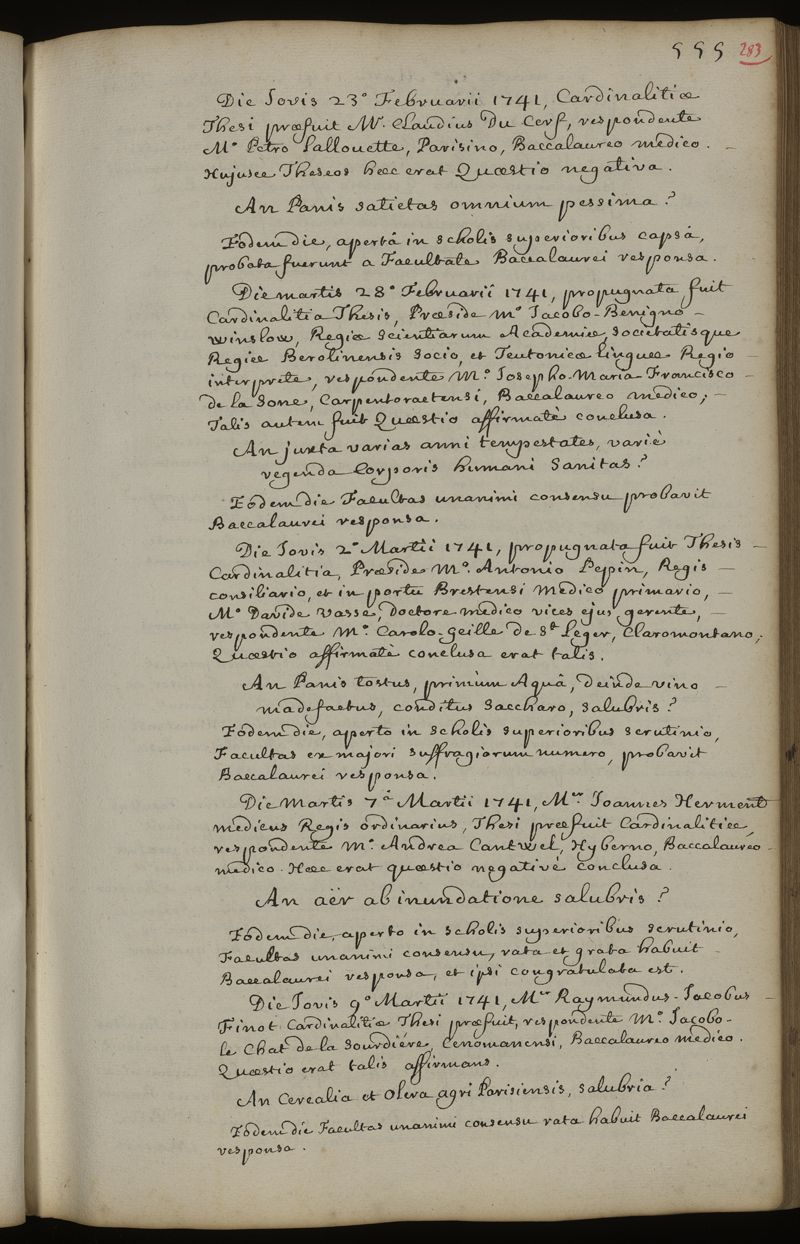 555 283
Die Jovis 23° Februarii 1741, Cardinalitiæ
Thesi præfuit Mr. Claudius Du Cerf, respondente
M° Petro Lallouette, Parisino, Baccalaureo medico. –
Hujusce Theseos hæc erat Quæstio negativa.
An Panis satietas omnium pessima?
Eodem die, apertâ in scholis superioribus capsâ,
probata fuerunt a Facultate Baccalaurei responsa.
Die martis 28° Februarii 1741, propugnata fuit
Cardinalitia Thesis, Præside M° Jacobo-Benigno –
Winslow, Regiæ Scientiarum Academiæ, Societatisque
Regiæ Berolinensis Socio, et Teutonicæ linguæ Regio –
interprete, respondente M.° Josepho-Maria-Francisco –
de la Sone, Carpentoractensi, Baccalaureo medico; –
Talis autem fuit Quæstio affirmatè conclusa.
An juxta varias anni tempestates, variè
regenda Corporis humani Sanitas?
Eodem die Facultas unanimi consensu probavit
Baccalaurei responsa.
Die Jovis 2° Martii 1741, propugnata fuit Thesis –
Cardinalitia, Præside M°. Antonio Pepin, Regis –
consiliario, et in portu Brestensi medico primario, –
M° Davide Vasse, Doctore medico vices ejus gerente, –
respondente M.° Carolo-Geille de St Leger, Claromontano;
Quæstio affirmatè conclusa erat talis.
An Panis tostus, primùm Aquâ, deinde vino –
madefactus, conditus Saccharo, salubris?
Eodem die, aperto in Scholis superioribus scrutinio,
Facultas ex majori suffragiorum numero, probavit
Baccalaurei responsa.
Die Martis 7â Martii 1741, Mer. Joannes Herment
medicus Regis ordinarius, Thesi præfuit Cardinalitiæ,
respondente M°. Andrea Cantwel, Hyberno, Baccalaureo –
medico. Hæc erat quæstio negativè conclusa.
An aër ab inundatione salubris?
Eodem die, aperto in Scholis superioribus scrutinio,
Facultas unanimi consensu, rata et grata habuit –
Baccalaurei responsa, et ipsi congratulata est.
Die Jovis 9° Martii 1741, Mer Raymundus-Jacobus –
Finot Cardinalitiæ Thesi præfuit, respondente M° Jacobo-
le Chat de la Sourdiére, Cenomanensi, Baccalaureo medico.
Quæstio erat talis affirmans.
An Cerealia et Olera agri Parisiensis, salubria?
Eodem die Facultas unanimi consensu rata habuit Baccalaurei
responsa.